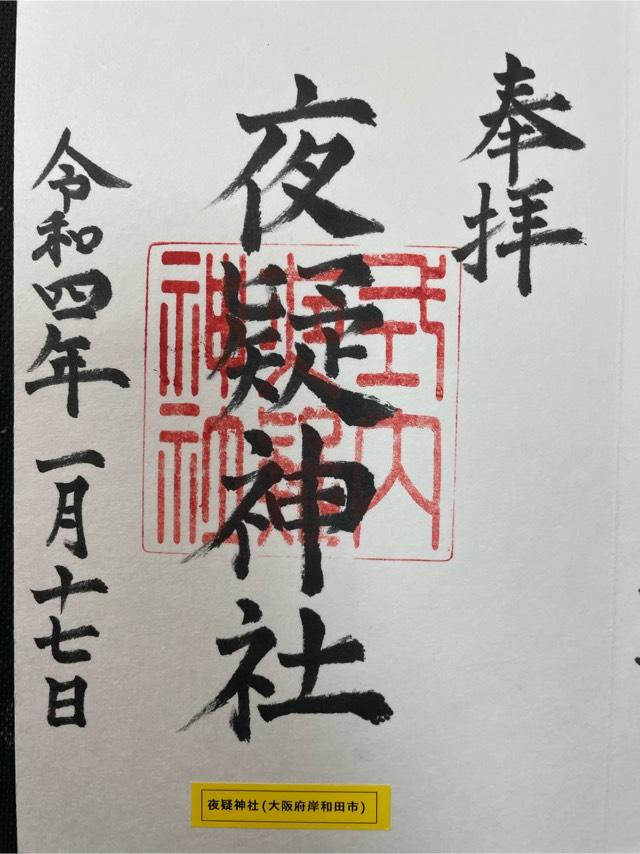 奉拝
夜疑神社
式内
夜疑
神社
令和四年一月十七日
夜疑神社(大阪府岸和田市)